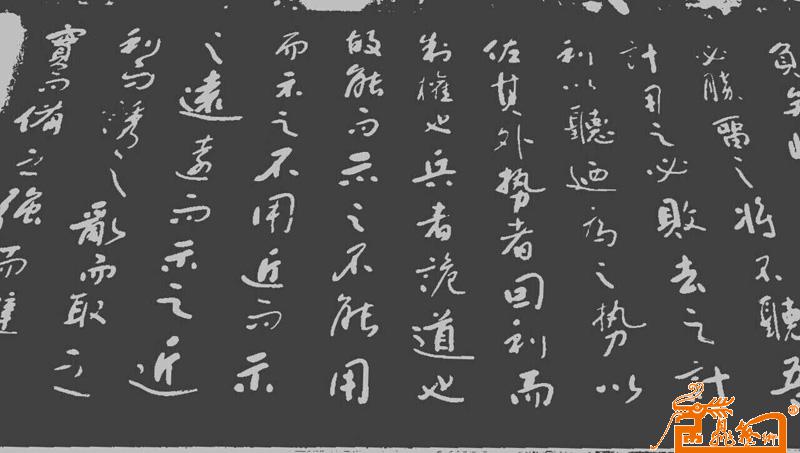 負
必勝留之將不聽吾
計用之必敗去之計
利以聽迺為之势以
佐其外势者因利而
制權也兵者詭道也
故能而示之不能用
而示之不用近而示
之遠遠而示之近
利而誘之亂而取之
實而備之強而避